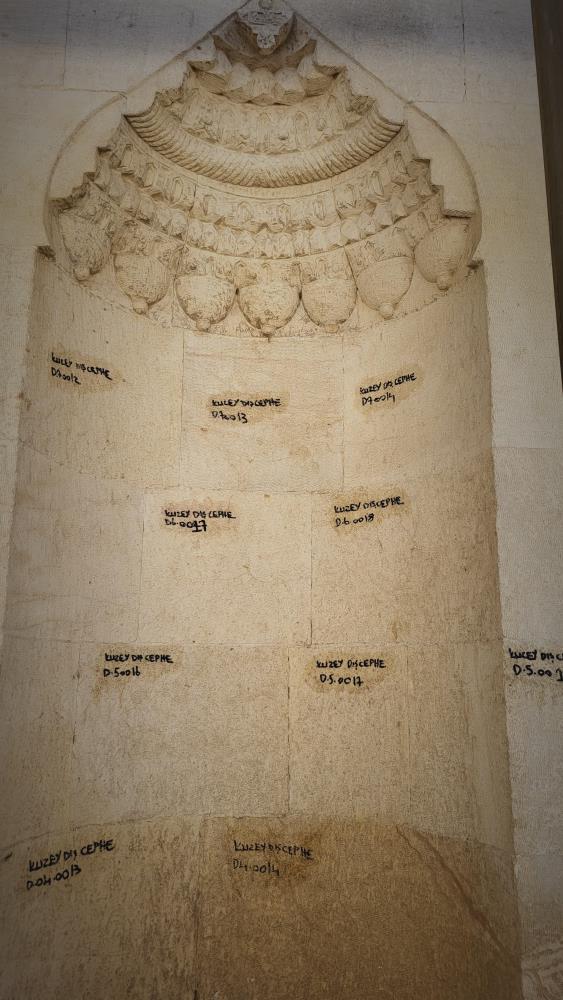 KUZEY DIŞ CEPHE
D.7.0012
KUZEY DIŞ CEPHE
D.7.0013
KUZEY DIŞ CEPHE
D.7.0014
KUZEY DIŞ CEPHE
D.6.0017
KUZEY DIŞ CEPHE
D.6.0018
KUZEY DIŞ CEPHE
D.5.0016
KUZEY DIŞ CEPHE
D.5.0017
KUZEY DIŞ
D.5.00
KUZEY DIŞ CEPHE
D.04.0013
KUZEY DIŞ CEPHE
D4.0014